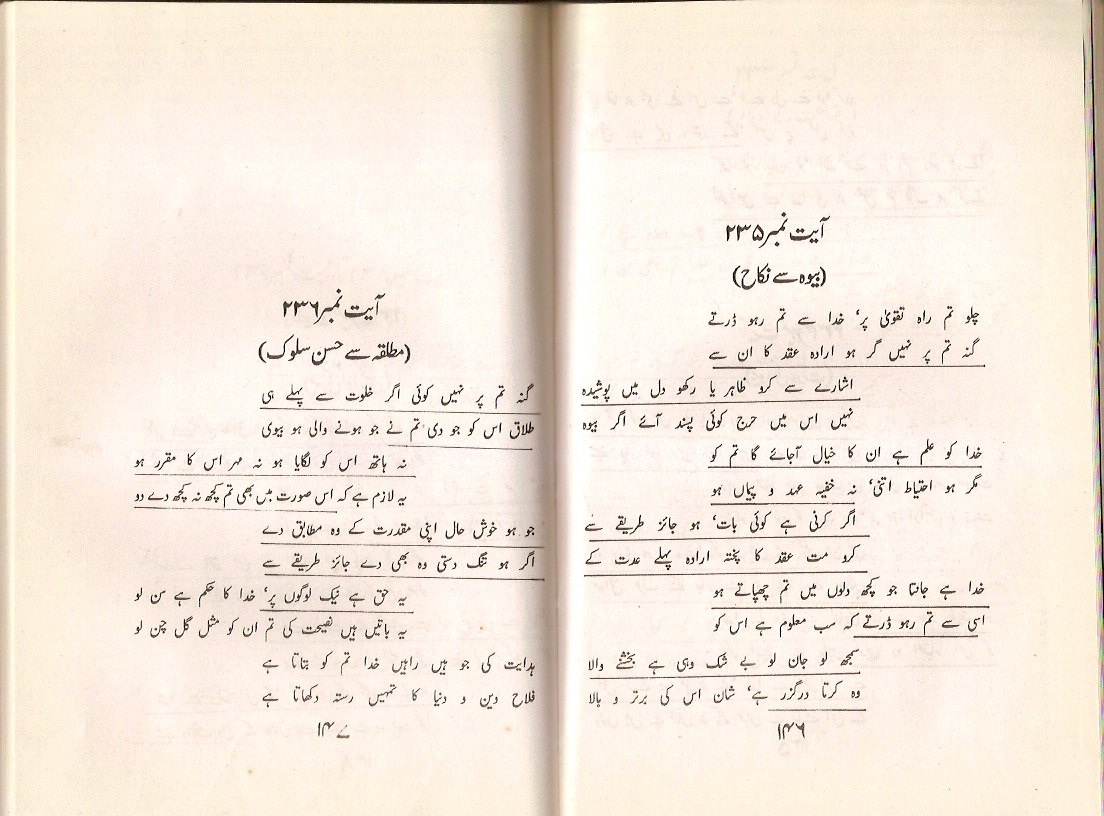 آیت نمبر ۲۳۵
(بیوہ سے نکاح)
چلو تم راہ تقویٰ پر، خدا سے تم رہو ڈرتے
گنہ تم پر نہیں گر ہو ارادہ عقد کا ان سے
اشارے سے کرو ظاہر یا رکھو دل میں پوشیدہ
نہیں اس میں حرج کوئی پسند آئے اگر بیوہ
خدا کو علم ہے ان کا خیال آجائے گا تم کو
مگر ہو احتیاط اتنی، نہ خفیہ عہد و پیماں ہو
اگر کرنی ہے کوئی بات، ہو جائز طریقے سے
کرو مت عقد کا پختہ ارادہ پہلے عدت کے
خدا ہے جانتا جو کچھ دلوں میں تم چھپاتے ہو
اسی سے تم رہو ڈرتے کہ سب معلوم ہے اس کو
سمجھ لو جان لو بے شک وہی ہے بخشنے والا
وہ کرتا درگزر ہے، شان اس کی برتر و بالا
۱۴۶
آیت نمبر ۲۳۶
(مطلقہ سے حسن سلوک)
گنہ تم پر نہیں کوئی اگر خلوت سے پہلے ہی
طلاق اس کو جو دی تم نے جو ہونے والی ہو بیوی
نہ ہاتھ اس کو لگایا ہو نہ مہر اس کا مقرر ہو
یہ لازم ہے کہ اس صورت میں بھی تم کچھ نہ کچھ دے دو
جو ہو خوش حال اپنی مقدرت کے وہ مطابق دے
اگر ہو تنگ دستی وہ بھی دے جائز طریقے سے
یہ حق ہے نیک لوگوں پر، خدا کا حکم ہے سن لو
یہ باتیں ہیں نصیحت کی تم ان کو مثل گل چن لو
ہدایت کی جو ہیں راہیں خدا تم کو بتاتا ہے
فلاح دین و دنیا کا تمہیں رستہ دکھاتا ہے
۱۴۷